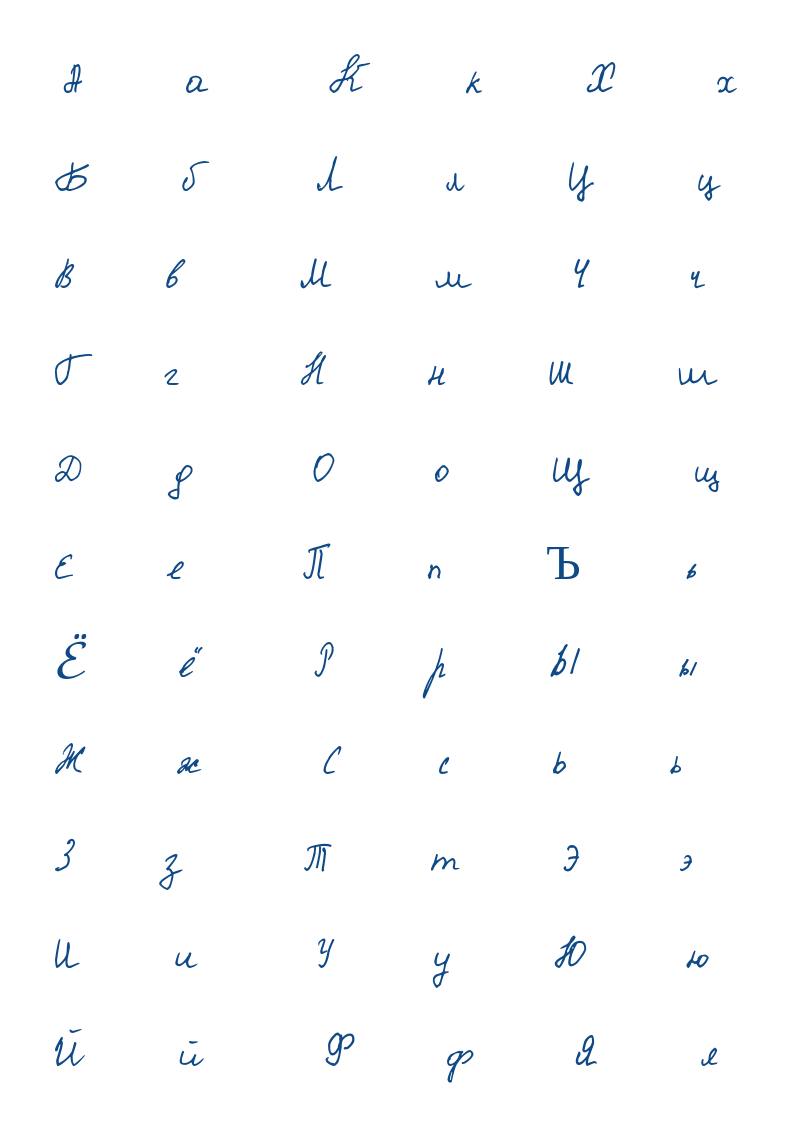 А а К к Х х
Б б Л л Ц ц
В в М м Ч ч
Г г Н н Ш ш
Д д О о Щ щ
Е е П п Ъ ъ
Ё ё Р р Ы ы
Ж ж С с Ь ь
З з Т т Э э
И и У у Ю ю
Й й Ф ф Я я